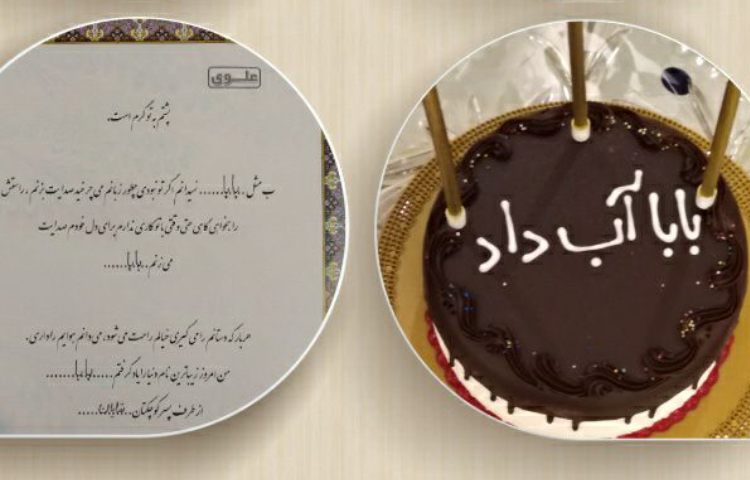 علوی
پشتم به تو گرم است.
ب مثل ..بابا....... نمیدانم اگر تو نبودی چطور زبانم می چرخید صدایت بزنم . راستش
را بخواهی گاهی حتی وقتی با تو کاری ندارم برای دل خودم صدایت
می زنم ..بابا......
هربار که دستانم را می گیری خیالم راحت می شود، می دانم هوایم را داری.
من امروز زیباترین نام دنیا را یاد گرفتم.....بابا.......
از طرف پسر کوچکتان..
بابا آب داد